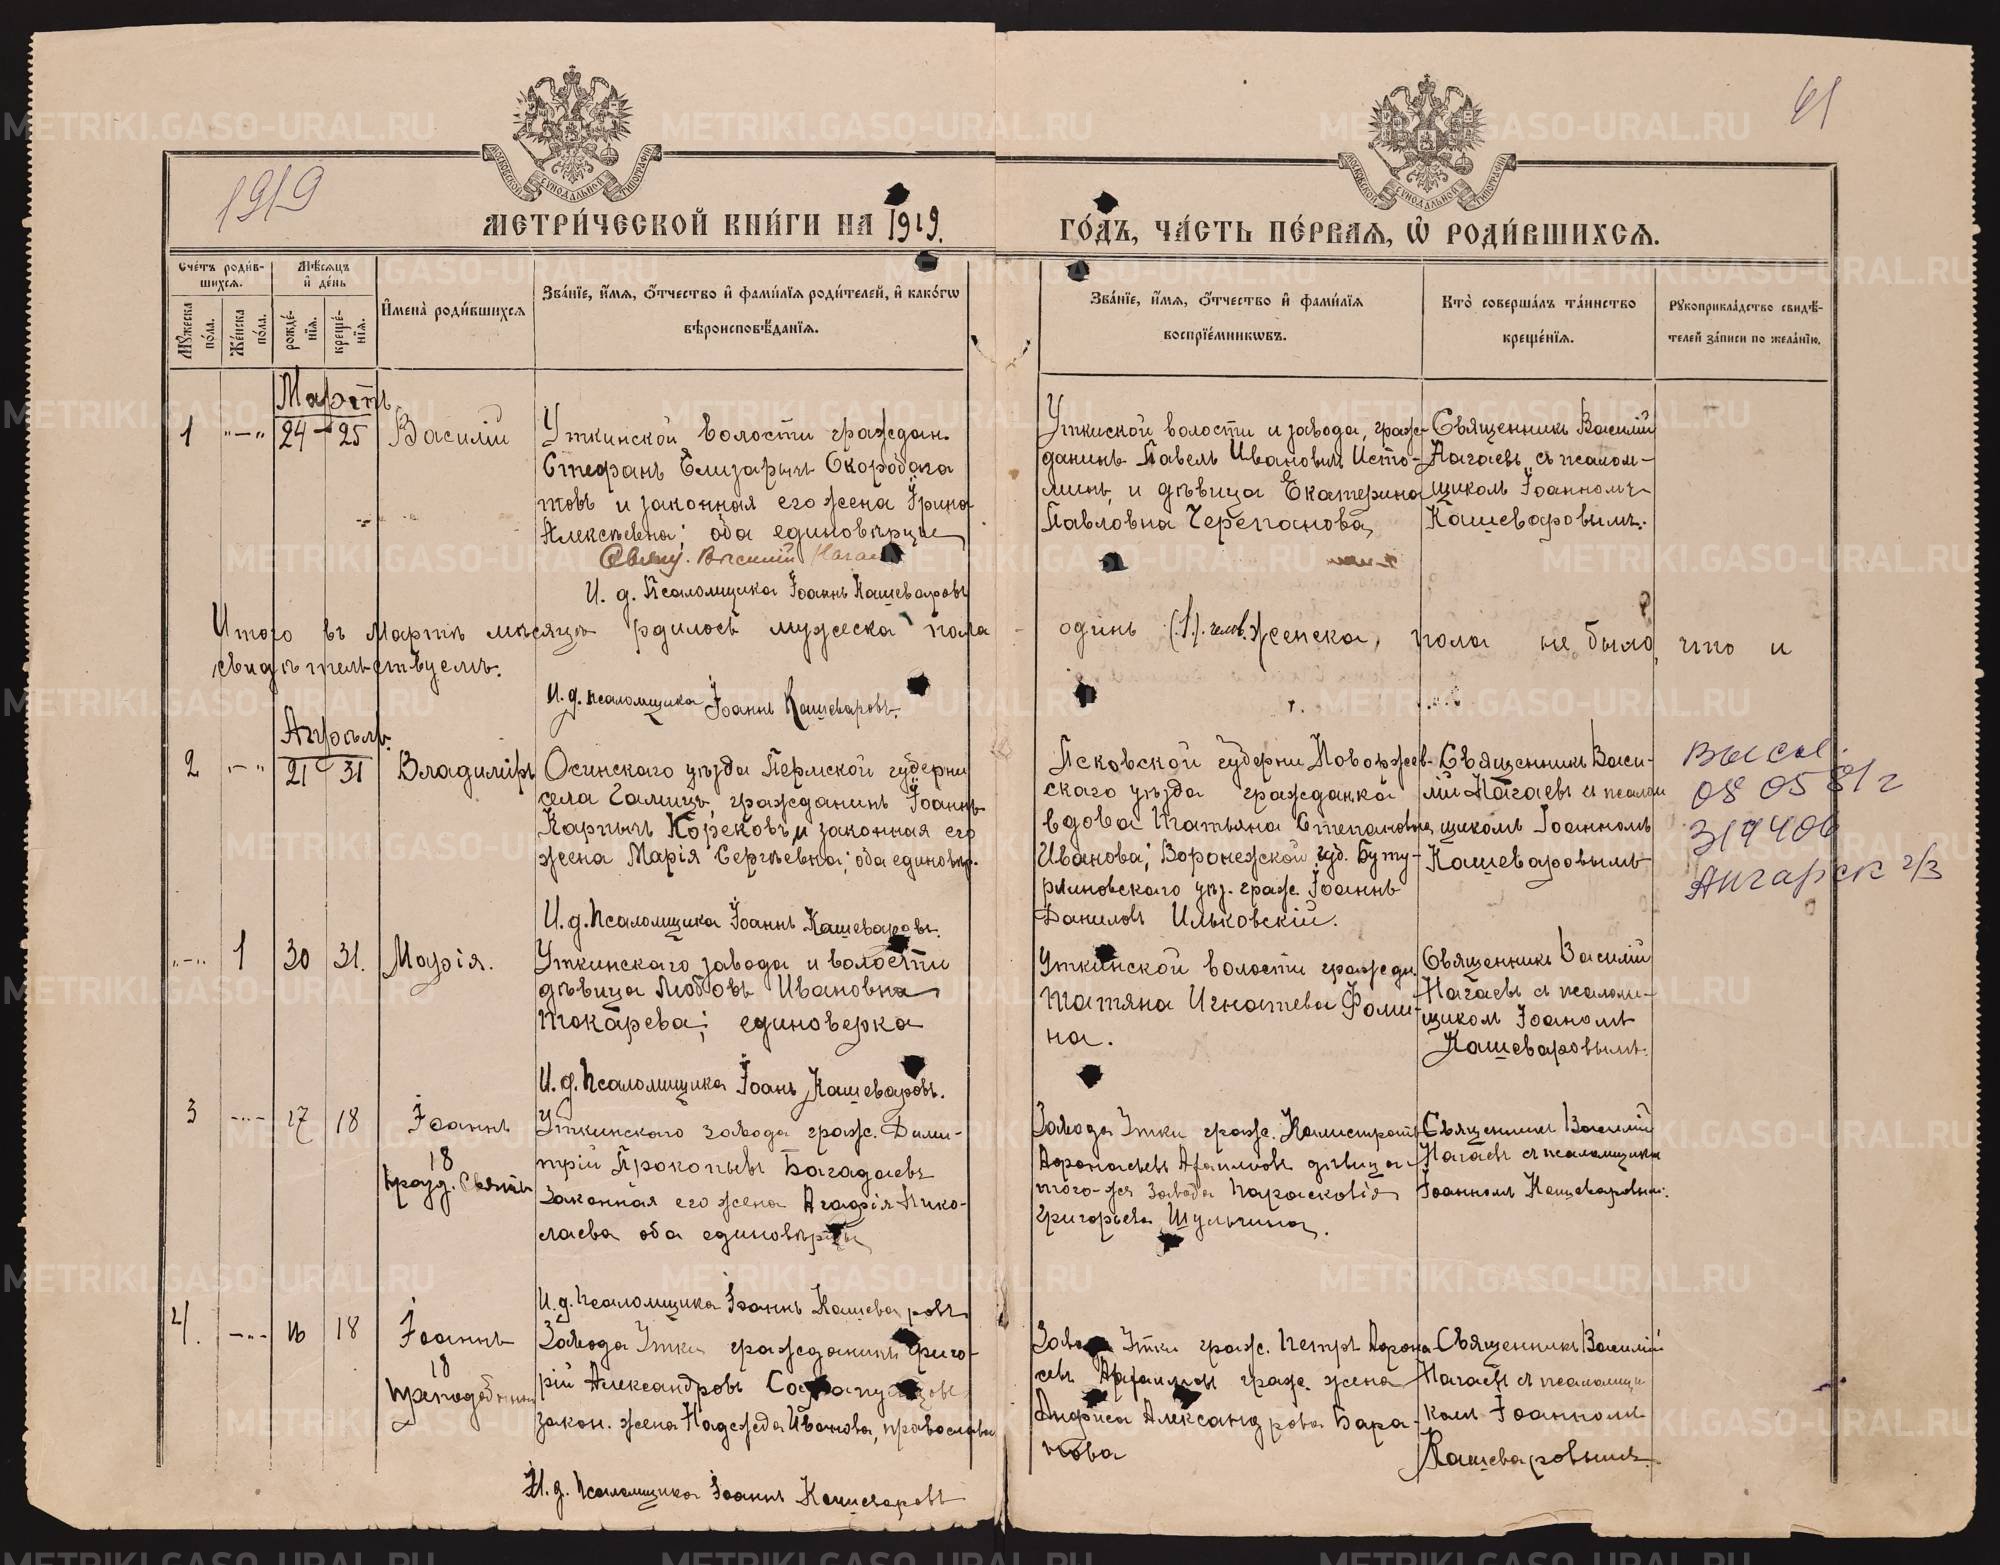 61
1919
МОСКОВСКОЙ СУНОДАЛЬНОЙ ТИПОГРАФІИ
МОСКОВСКОЙ СУНОДАЛЬНОЙ ТИПОГРАФІИ
МЕТРИ́ЧЕСКОЙ КНИ́ГИ НА 1919.
ГО́ДЪ, ЧА́СТЬ ПЕ́РВАЯ, Ѡ҆ РОДИ́ВШИХСЯ.
Сче́тъ роди́вшихся.
Мѣ́сяцъ и҆ де́нь
Мꙋ́жеска по́ла.
Же́нска по́ла.
рожде́нїя.
креще́нїя.
И҆мена̀ роди́вшихся
Зва́нїе, и҆́мя, ѻ҆́тчество и҆ фами́лїя роди́телей, и҆ како́гѡ
вѣроисповѣ́данїя.
Зва́нїе, и҆́мя, ѻ҆́тчество и҆ фами́лїя
воспрїе́мникѡвъ.
Кто̀ соверша́лъ та́инство
креще́нїя.
Рꙋкоприкла́дство свидѣ́-
телей за́писи по жела́нїю.
Мартъ
1 "—" 24 – 25 Василій
Уткинской волости граждан.
Стефанъ Елизарыч Скоробога
товъ и законная его жена Ірина
Алексѣевна; оба единовѣрцы
Свящ. Василий Нагаев
И. д. Псаломщика Іоаннъ Кашеваровъ
Уткиской волости и завода, граж-
данинъ Павелъ Ивановичъ Исто-
минъ, и дѣвица Екатерина
Павловна Черепанова,
Священникъ Василій
Нагаевъ съ псалом-
щиком Іоанномъ
Кашеваровымъ.
Итого въ Мартѣ мѣсяцѣ рдилось мужеска пола
одинъ (1) челов. женска, пола не было, что и
свидѣтельствуемъ.
И. д. псаломщика Іоаннъ Кашеваровъ.
Апрѣль.
2 "—" 21 31 Владиміръ
Осинскаго уѣзда Пермской губерни
села гражданинъ Іоаннъ
Карпычъ Корековъ и законная его
жена Марія Сергѣевна; оба единовѣр.
И. д. Псаломщика Іоаннъ Кашеваровъ.
Псковской губерни Новоржев-
скаго уѣзда гражданка
вдова Татьяна Степановна
Иванова; Воронежской губ. Буту-
рлиновскаго уѣз. граж. Іоаннъ
Данилов Ильковскій.
Священникъ Васи-
лій Нагаевъ съ псалом
щикомъ Іоанномъ
Кашеваровымъ
Высл.
08 05 81 г
319406
Ангарск г/з
"—" 1 30 31. Марія.
Уткинскаго завода и волости
дѣвица Любовь Ивановна
Токарева; единоверка
И. д. Псаломщика Іоанъ Кашеваровъ.
Уткинской волости гражд.
Татяна Игнатева Фоми-
на.
Священникъ Василій
Нагаевъ съ псалом-
щиком Іоаномъ
Кашеваровымъ.
3 "—" 17 18 Іоаннъ
18
Уткинского завода граж. Дими-
трій Прокопьевъ Багадаевъ
законная его жена Агафія Нико-
лаева оба единовѣрцы
И. д. псаломщика Іоаннъ Кашеваровъ
Завода Утки граж. Калистратъ
дѣвица
того-же завода Парасковія
Григорьева Шульгина.
Священникъ Василій
Нагаевъ съ псаломщика
Іоанномъ Кашеваровым.
4. "—" 16 18 Іоаннъ
18
Преподобный
Завода Утки гражданинъ Григо-
рій Александровъ
закон. жена Надежда Иванова, православн
И. д. псаломщика Іоаннъ Кашеваровъ
Завода Утки граж. Петръ Афона
севъ граж. жена
Анфиса Александрова Бара-
нова
Священникъ Василій
Нагаевъ съ псаломщи
комъ Іоанномъ
Кашеваровымъ.
METRIKI.GASO-URAL.RU